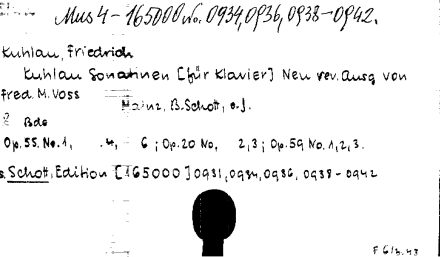 Mus 4 - 165000 No. 0934,0936, 0938-0942.
Kuhlau, Friedrich
Kuhlau Sonatinen [für Klavier] Neu rev. Ausg von
Fred. M. Voss
Mainz, B. Schott, o.J.
Bde
Op.55. No. 1, 4, 6 ; Op.20 No, 2,3 ; Op.59 No.1,2,3.
s. Schott, Edition [165000] 0931, 0934, 0936, 0938-0942